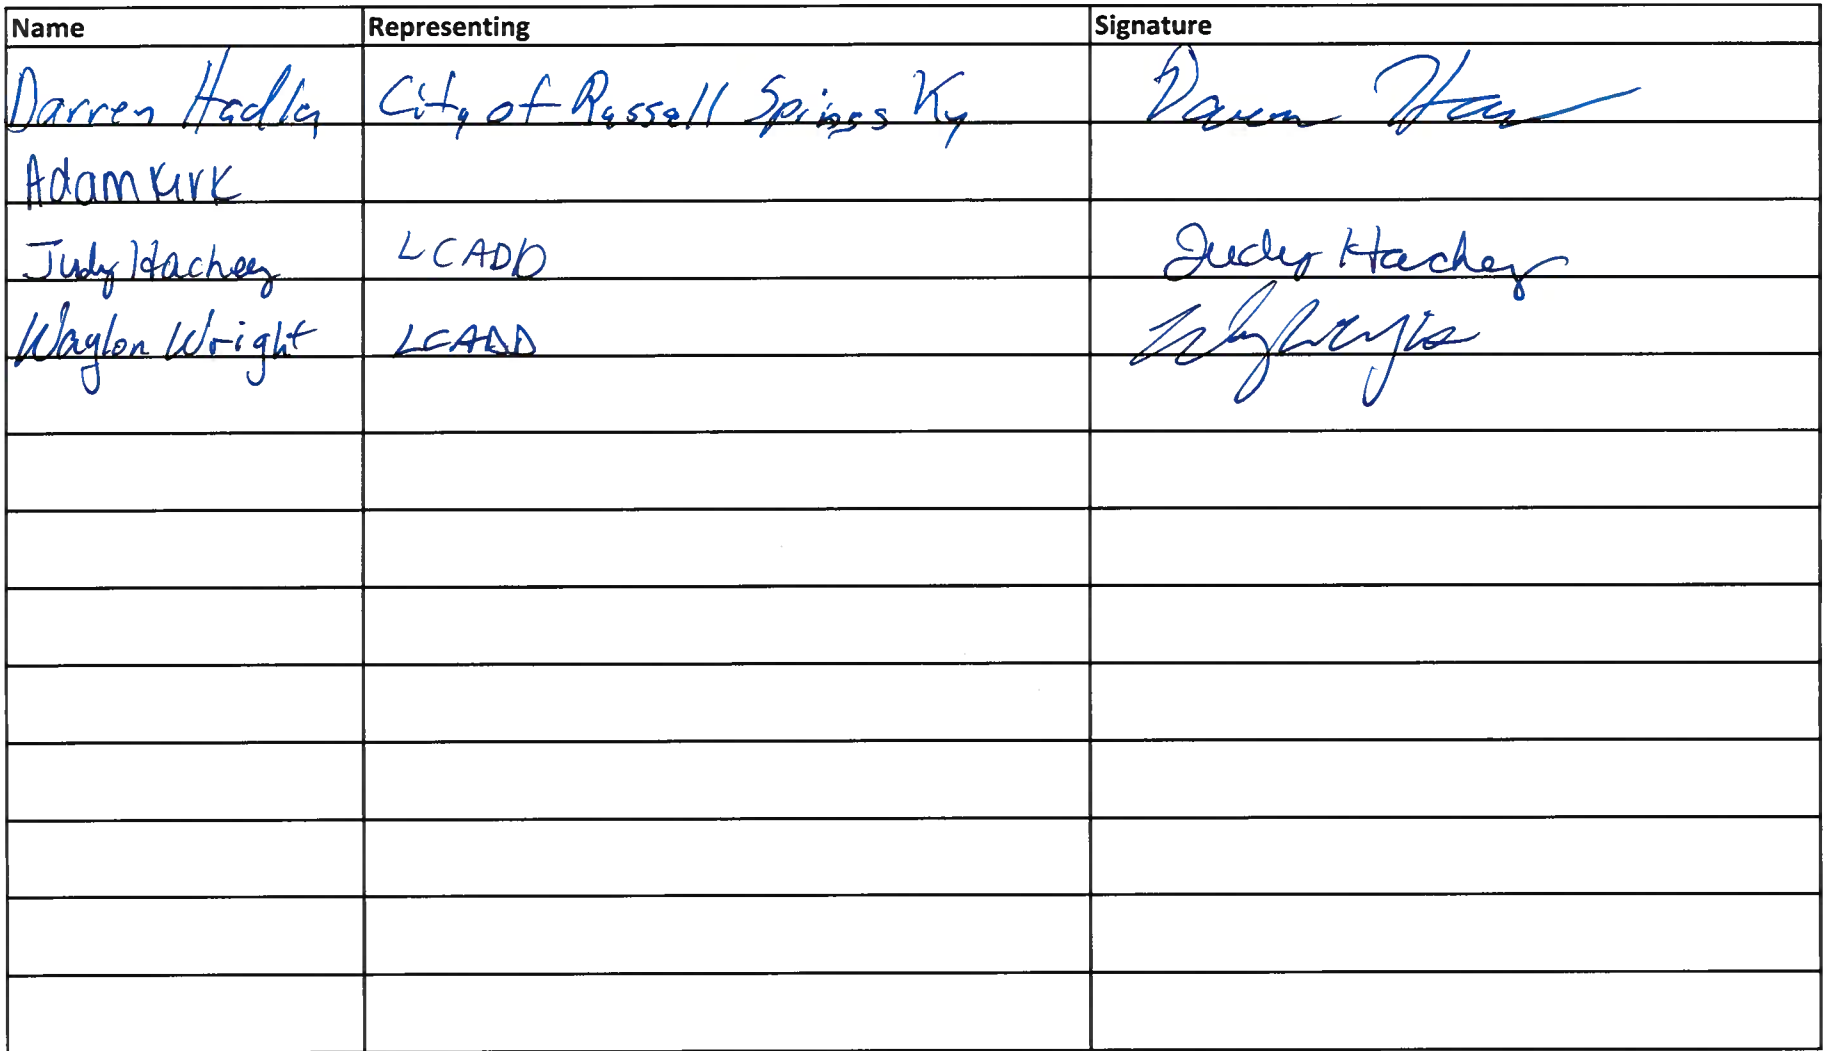 Name Representing Signature
Darren Hadley City of Russell Springs Ky Darren
Adam Kirk
Judy Hachey LCADD Judy Hachey
Waylon Wright LCADD